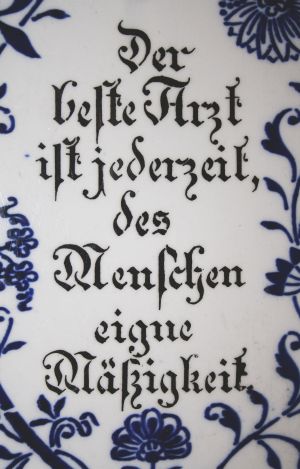 Der
beſte Arzt
iſt jederzeit,
des
Menſchen
eigne
Mäßigkeit.